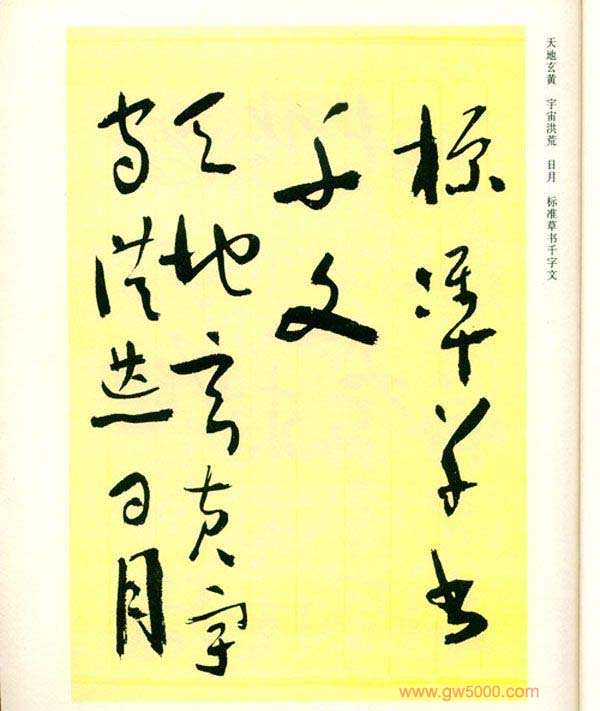 天地玄黄 宇宙洪荒 日月 标准草书千字文
標準草書
千文
天地玄黄宇
宙洪荒日月
www.gw5000.com